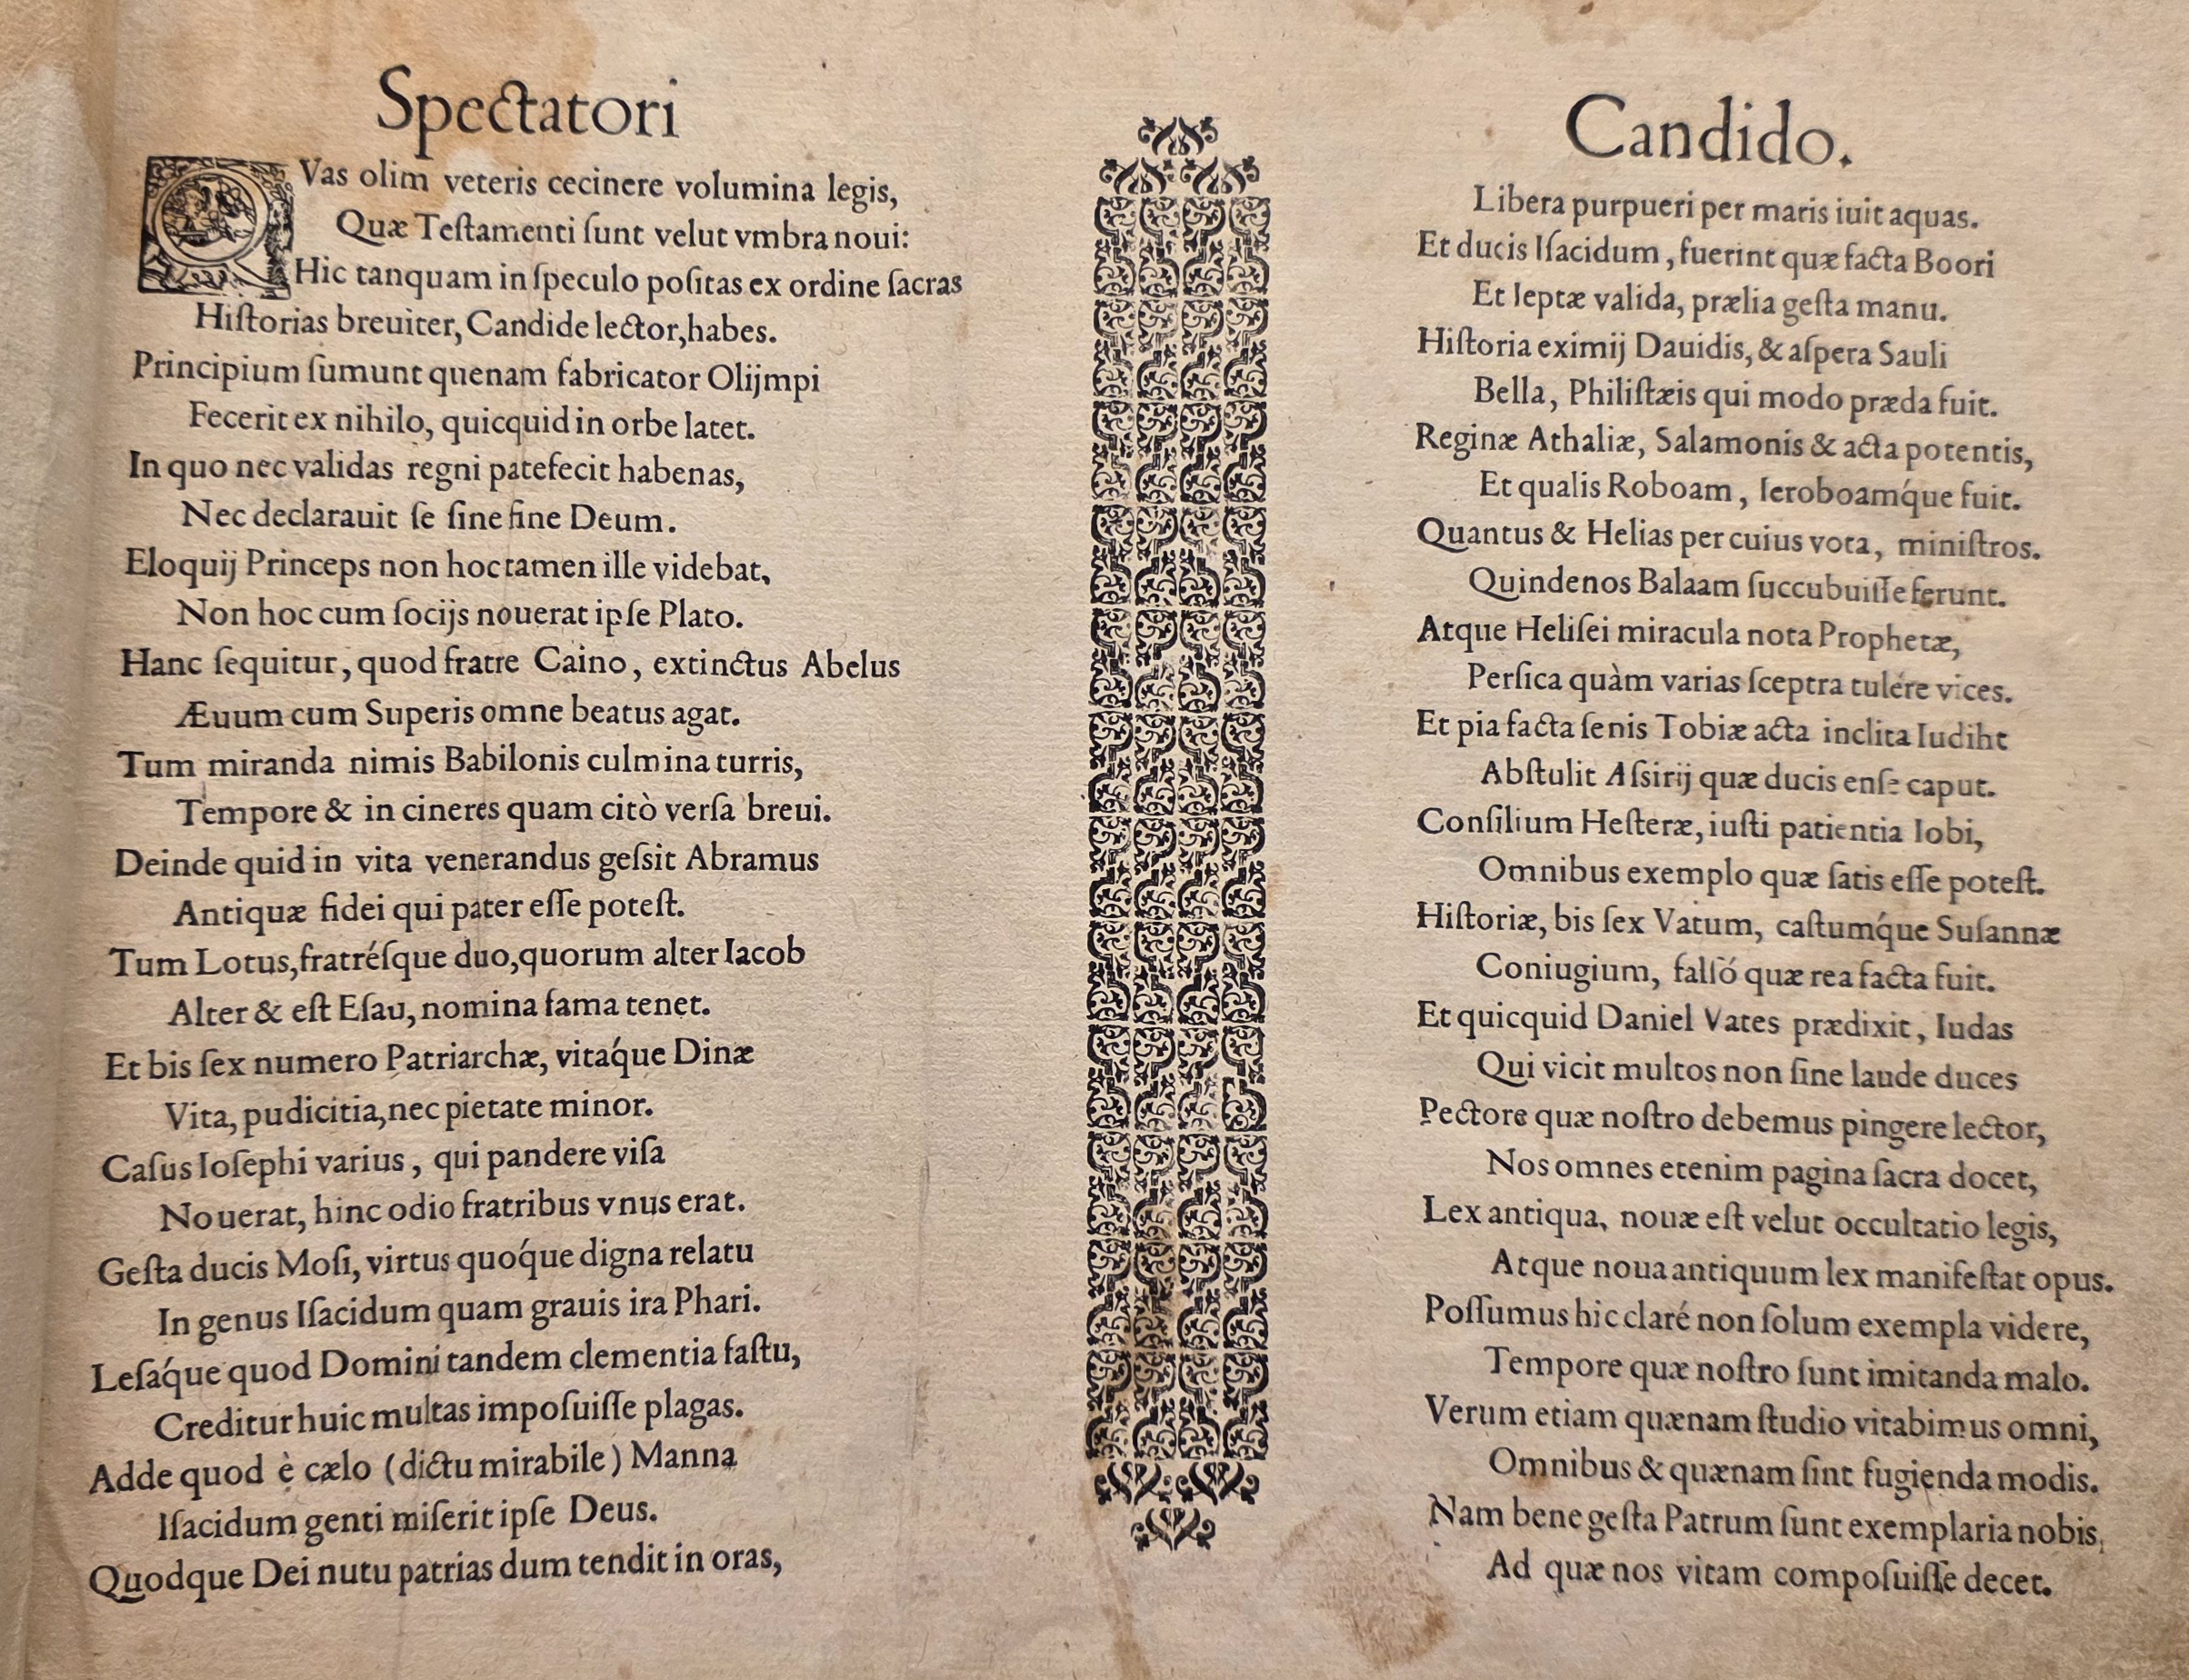 Spectatori
QVas olim veteris cecinere volumina legis,
Quæ Teſtamenti ſunt velut vmbra noui:
Hic tanquam in ſpeculo poſitas ex ordine ſacras
Hiſtorias breuiter, Candide lector, habes.
Principium ſumunt quenam fabricator Olijmpi
Fecerit ex nihilo, quicquid in orbe latet.
In quo nec validas regni patefecit habenas,
Nec declarauit ſe ſine fine Deum.
Eloquij Princeps non hoc tamen ille videbat,
Non hoc cum ſocijs nouerat ipſe Plato.
Hanc ſequitur, quod fratre Caino, extinctus Abelus
Æuum cum Superis omne beatus agat.
Tum miranda nimis Babilonis culmina turris,
Tempore & in cineres quam citò verſa breui.
Deinde quid in vita venerandus geſsit Abramus
Antiquæ fidei qui pater eſſe poteſt.
Tum Lotus, fratréſque duo, quorum alter Iacob
Alter & eſt Eſau, nomina fama tenet.
Et bis ſex numero Patriarchæ, vitáque Dinæ
Vita, pudicitia, nec pietate minor.
Caſus Ioſephi varius, qui pandere viſa
Nouerat, hinc odio fratribus vnus erat.
Geſta ducis Moſi, virtus quoq́ue digna relatu
In genus Iſacidum quam grauis ira Phari.
Leſáque quod Domini tandem clementia faſtu,
Creditur huic multas impoſuiſſe plagas.
Adde quod è cælo (dictu mirabile) Manna
Iſacidum genti miſerit ipſe Deus.
Quodque Dei nutu patrias dum tendit in oras,
Candido.
Libera purpueri per maris iuit aquas.
Et ducis Iſacidum, fuerint quæ facta Boori
Et Ieptæ valida, prælia geſta manu.
Hiſtoria eximij Dauidis, & aſpera Sauli
Bella, Philiſtæis qui modo præda fuit.
Reginæ Athaliæ, Salamonis & acta potentis,
Et qualis Roboam, Ieroboamq́ue fuit.
Quantus & Helias per cuius vota, miniſtros.
Quindenos Balaam ſuccubuiſſe ferunt.
Atque Heliſei miracula nota Prophetæ,
Perſica quàm varias ſceptra tulére vices.
Et pia facta ſenis Tobiæ acta inclita Iudiht
Abſtulit Aſsirij quæ ducis enſe caput.
Conſilium Heſteræ, iuſti patientia Iobi,
Omnibus exemplo quæ ſatis eſſe poteſt.
Hiſtoriæ, bis ſex Vatum, caſtumq́ue Suſannæ
Coniugium, falſó quæ rea facta fuit.
Et quicquid Daniel Vates prædixit, Iudas
Qui vicit multos non ſine laude duces
Pectore quæ noſtro debemus pingere lector,
Nos omnes etenim pagina ſacra docet,
Lex antiqua, nouæ eſt velut occultatio legis,
Atque noua antiquum lex manifeſtat opus.
Poſſumus hic claré non ſolum exempla videre,
Tempore quæ noſtro ſunt imitanda malo.
Verum etiam quænam ſtudio vitabimus omni,
Omnibus & quænam ſint fugienda modis.
Nam bene geſta Patrum ſunt exemplaria nobis,
Ad quæ nos vitam compoſuiſſe decet.